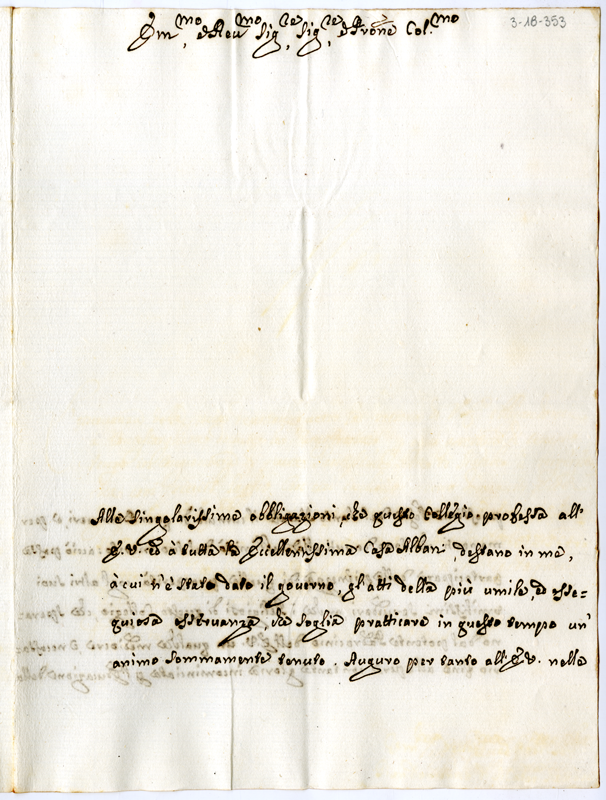 3-18-353
Em.mo, e Reu.mo Sig.re, Sig.re, e Prone Col.mo
Alle singolarissime obbligazioni, che questo Collegio professa all'
E. V. ed à tutta la Eccellentissima Casa Albani, destano in me,
à cui n'è stato dato il governo, gl'atti della più umile, ed osse=
quiosa osservanza, che soglia pratticare in questo tempo un'
animo sommamente tenuto. Auguro per tanto all'E. V. nelle